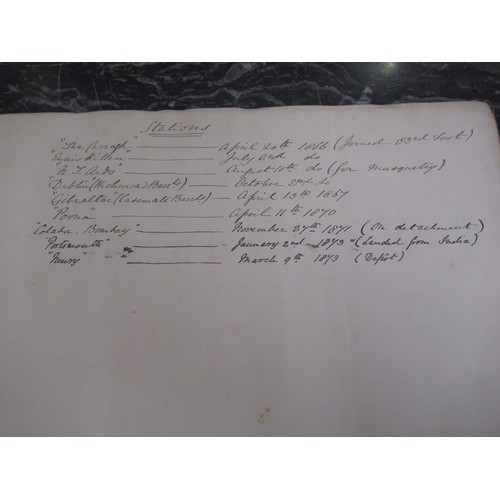 Stations
"The Curragh" — April 20th 1866 (Joined 83rd Foot)
"Enniskillen — July 2nd do
"N. T. Ards" — August 10th do (for Musquetry)
"Dublin" (Richmond Bcks) — October 2nd do
"Gibraltar" (Casemate Bcks) — April 13th 1867
"Poona" — April 11th 1870
"Colaba. Bombay" — November 27th 1871 (On detachment)
"Portsmouth" — January 2nd - 1873 "(Landed from India)
"Newry" — March 9th 1873 (Depôt)